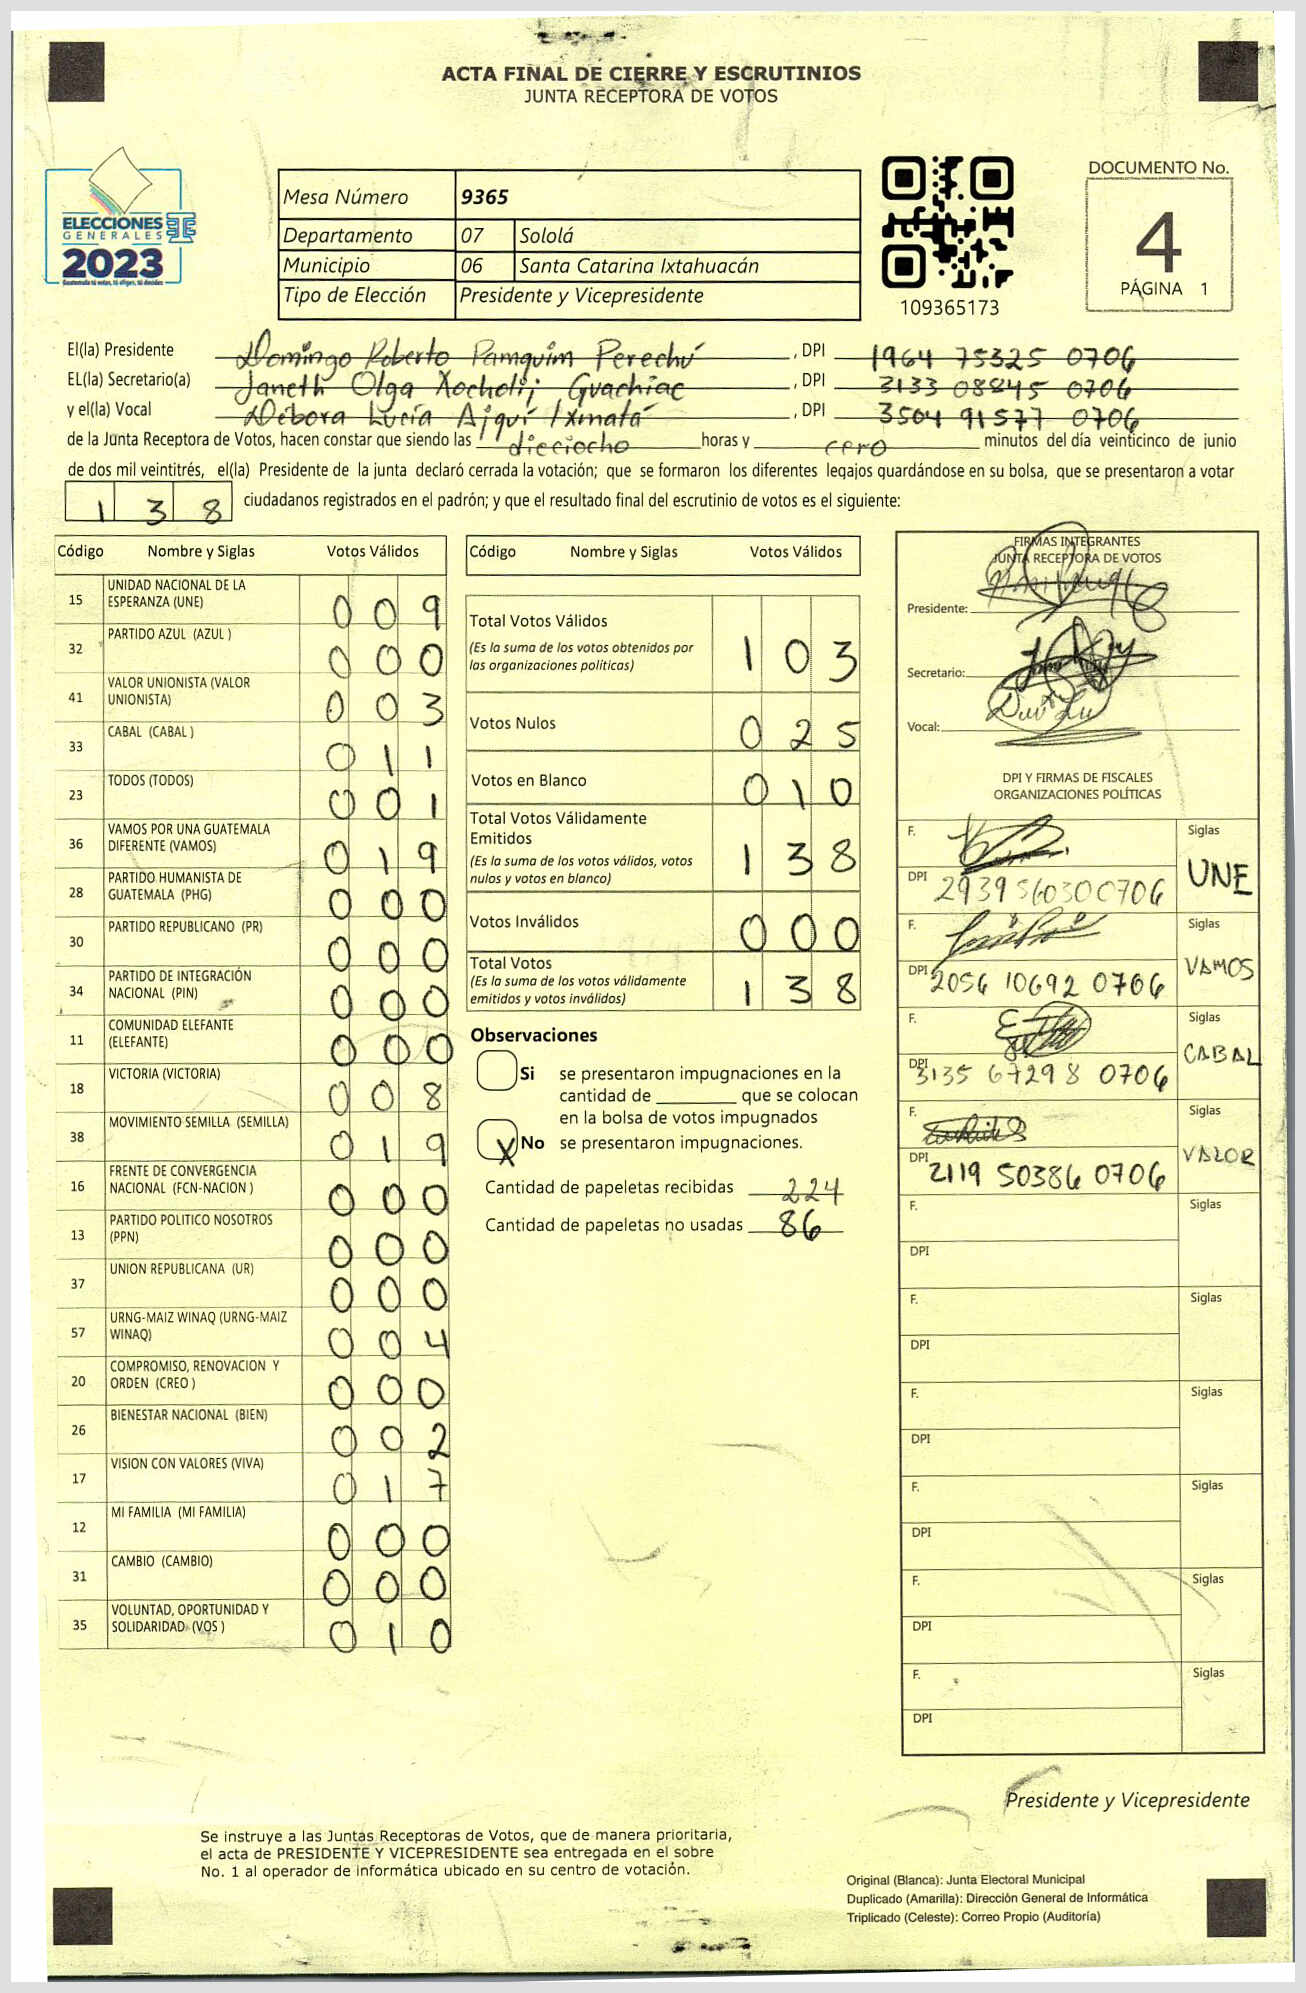 ACTA FINAL DE CIERRE Y ESCRUTINIOS
JUNTA RECEPTORA DE VOTOS
ELECCIONES
GENERALES
2023
Mesa Número 9365
Departamento 07 Sololá
Municipio 06 Santa Catarina Ixtahuacán
Tipo de Elección Presidente y Vicepresidente
109365173
DOCUMENTO No.
4
PÁGINA 1
El(la) Presidente Domingo Roberto Pamquim Perechú, DPI 1964 75325 0706
EL(la) Secretario(a) Janeth Olga Xocholij Guachiac, DPI 3133 08845 0706
y el(la) Vocal Débora Lucía Ajquí Ixmatá, DPI 3504 91577 0706
de la Junta Receptora de Votos, hacen constar que siendo las dieciocho horas y cero minutos del día veinticinco de junio
de dos mil veintitrés, el(la) Presidente de la junta declaró cerrada la votación; que se formaron los diferentes legajos quardándose en su bolsa, que se presentaron a votar
138 ciudadanos registrados en el padrón; y que el resultado final del escrutinio de votos es el siguiente:
Código Nombre y Siglas Votos Válidos
15 UNIDAD NACIONAL DE LA ESPERANZA (UNE) 009
32 PARTIDO AZUL (AZUL ) 000
41 VALOR UNIONISTA (VALOR UNIONISTA) 003
33 CABAL (CABAL ) 011
23 TODOS (TODOS) 001
36 VAMOS POR UNA GUATEMALA DIFERENTE (VAMOS) 019
28 PARTIDO HUMANISTA DE GUATEMALA (PHG) 000
30 PARTIDO REPUBLICANO (PR) 000
34 PARTIDO DE INTEGRACIÓN NACIONAL (PIN) 000
11 COMUNIDAD ELEFANTE (ELEFANTE) 000
18 VICTORIA (VICTORIA) 008
38 MOVIMIENTO SEMILLA (SEMILLA) 019
16 FRENTE DE CONVERGENCIA NACIONAL (FCN-NACION ) 000
13 PARTIDO POLITICO NOSOTROS (PPN) 000
37 UNION REPUBLICANA (UR) 000
57 URNG-MAIZ WINAQ (URNG-MAIZ WINAQ) 004
20 COMPROMISO, RENOVACION Y ORDEN (CREO ) 000
26 BIENESTAR NACIONAL (BIEN) 002
17 VISION CON VALORES (VIVA) 017
12 MI FAMILIA (MI FAMILIA) 000
31 CAMBIO (CAMBIO) 000
35 VOLUNTAD, OPORTUNIDAD Y SOLIDARIDAD (VOS ) 010
Código Nombre y Siglas Votos Válidos
Total Votos Válidos 103
(Es la suma de los votos obtenidos por
las organizaciones políticas)
Votos Nulos 025
Votos en Blanco 010
Total Votos Válidamente
Emitidos 138
(Es la suma de los votos válidos, votos
nulos y votos en blanco)
Votos Inválidos 000
Total Votos 138
(Es la suma de los votos válidamente
emitidos y votos inválidos)
Observaciones
Si se presentaron impugnaciones en la
cantidad de ________ que se colocan
en la bolsa de votos impugnados
X No se presentaron impugnaciones.
Cantidad de papeletas recibidas 224
Cantidad de papeletas no usadas 86
FIRMAS INTEGRANTES
JUNTA RECEPTORA DE VOTOS
Presidente:
Secretario:
Vocal:
DPI Y FIRMAS DE FISCALES
ORGANIZACIONES POLÍTICAS
F. Siglas
DPI 2939 56030 0706 UNE
F. Siglas
DPI 2056 10692 0706 VAMOS
F. Siglas
DPI 3135 67298 0706 CABAL
F. Siglas
DPI 2119 50386 0706 VALOR
F. Siglas
DPI
F. Siglas
DPI
F. Siglas
DPI
F. Siglas
DPI
F. Siglas
DPI
F. Siglas
DPI
Presidente y Vicepresidente
Se instruye a las Juntas Receptoras de Votos, que de manera prioritaria,
el acta de PRESIDENTE Y VICEPRESIDENTE sea entregada en el sobre
No. 1 al operador de informática ubicado en su centro de votación.
Original (Blanca): Junta Electoral Municipal
Duplicado (Amarilla): Dirección General de Informática
Triplicado (Celeste): Correo Propio (Auditoría)